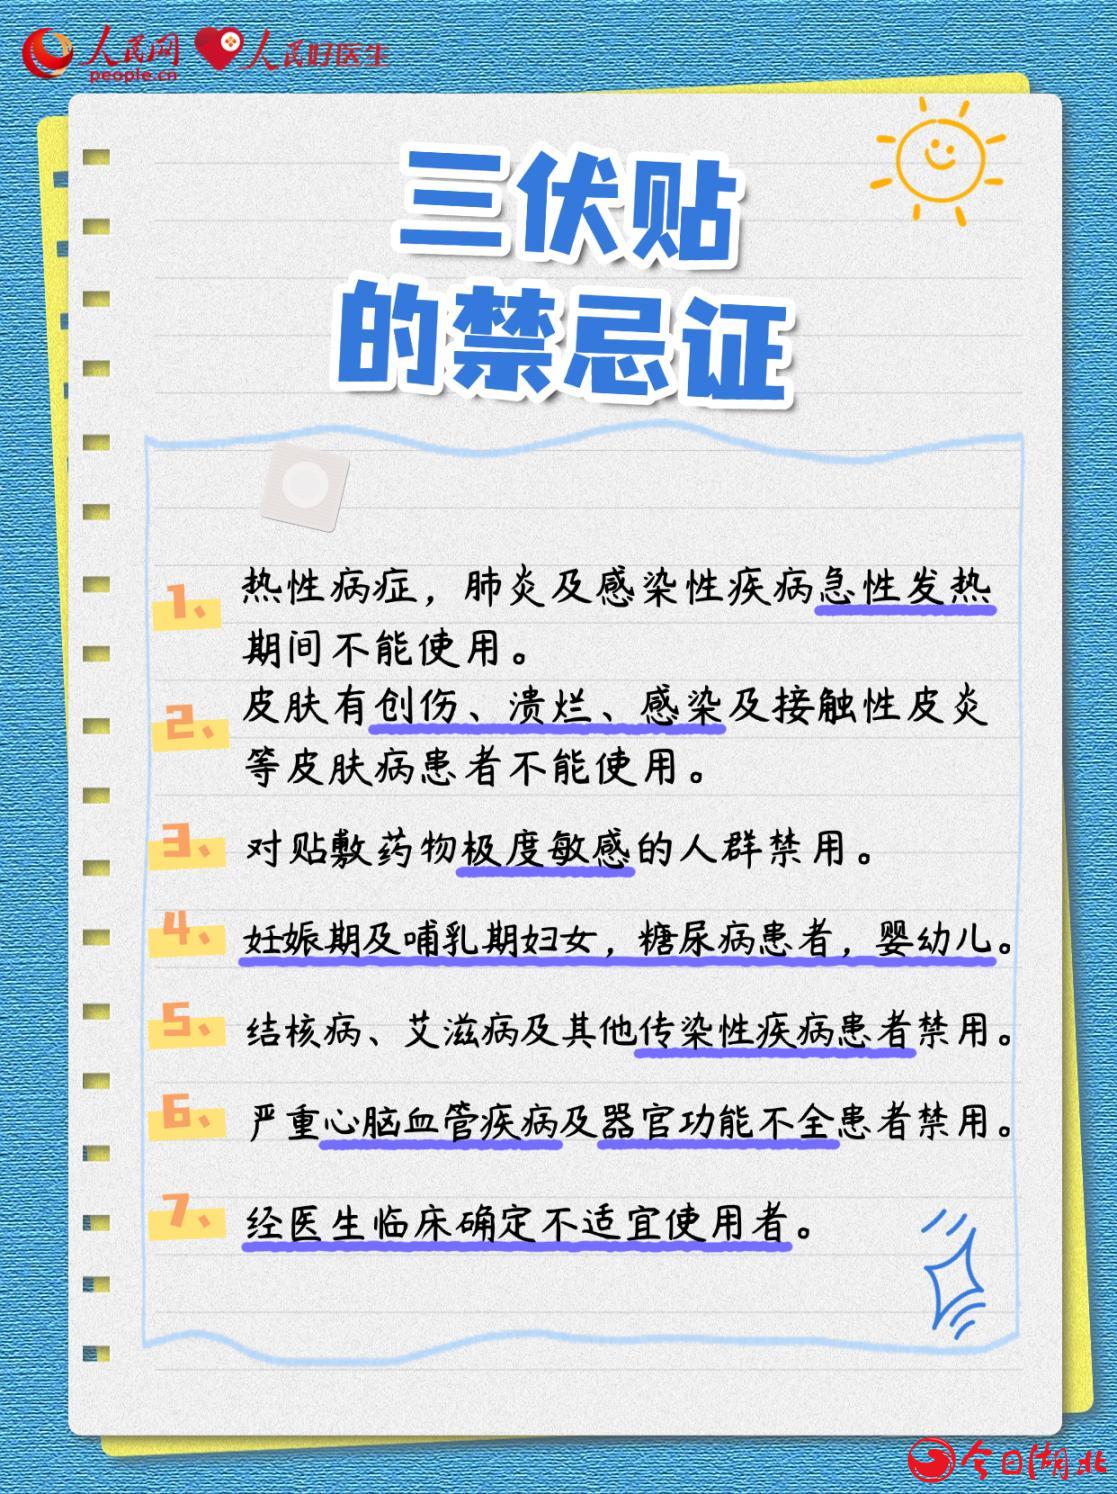 人民网
people.cn
人民好医生
三伏贴
的禁忌证
1、热性病症，肺炎及感染性疾病急性发热
期间不能使用。
2、皮肤有创伤、溃烂、感染及接触性皮炎
等皮肤病患者不能使用。
3、对贴敷药物极度敏感的人群禁用。
4、妊娠期及哺乳期妇女，糖尿病患者，婴幼儿。
5、结核病、艾滋病及其他传染性疾病患者禁用。
6、严重心脑血管疾病及器官功能不全患者禁用。
7、经医生临床确定不适宜使用者。
今日湖北